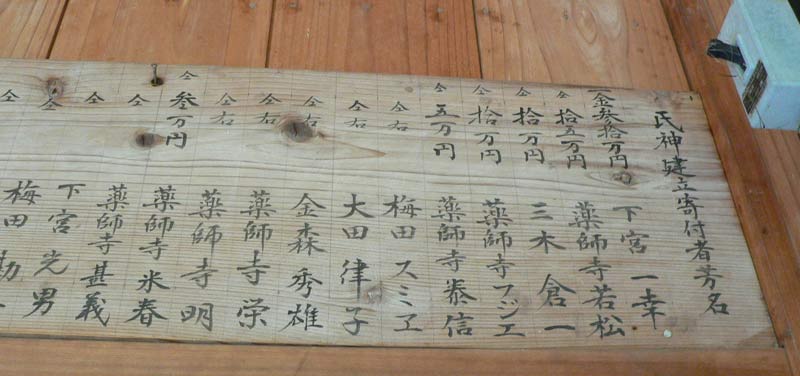 氏神建立寄付者芳名
一金参拾万円也 下宮一幸
仝 拾五万円 薬師寺若松
仝 拾万円 三木倉一
仝 拾万円 薬師寺フジエ
仝 五万円 薬師寺泰信
仝 右 梅田スミヱ
仝 右 大田律子
仝 右 金森秀雄
仝 右 薬師寺栄
仝 右 薬師寺明
仝 参万円 薬師寺米春
仝 薬師寺甚義
仝 下宮光男
仝 梅田勘